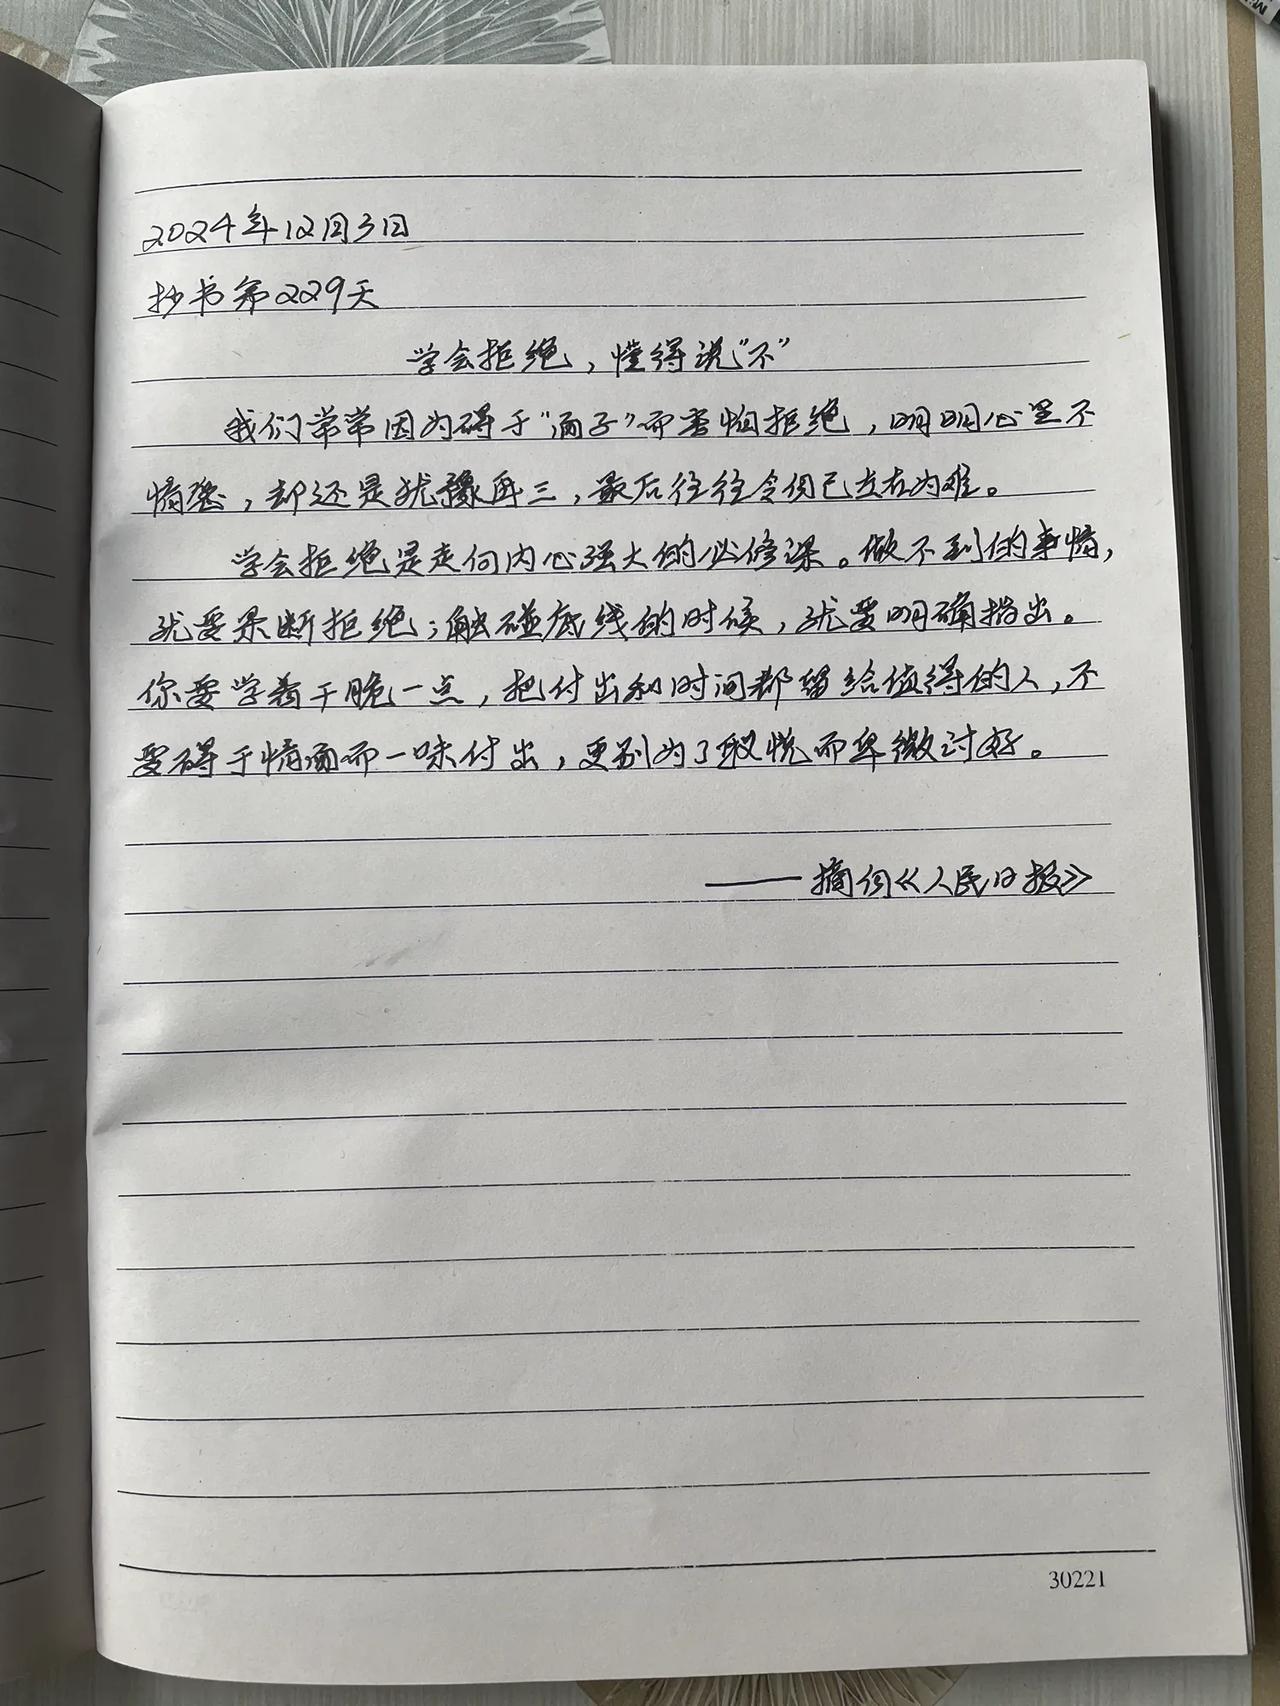 2024年12月3日
抄书第229天
学会拒绝，懂得说“不”
我们常常因为碍于“面子”而害怕拒绝，明明心里不
情愿，却还是犹豫再三，最后往往令自己左右为难。
学会拒绝是走向内心强大的必修课。做不到的事情，
就要果断拒绝；触碰底线的时候，就要明确指出。
你要学着干脆一点，把付出和时间都留给值得的人，不
要碍于情面而一味付出，更别为了取悦而卑微讨好。
——摘自《人民日报》
30221